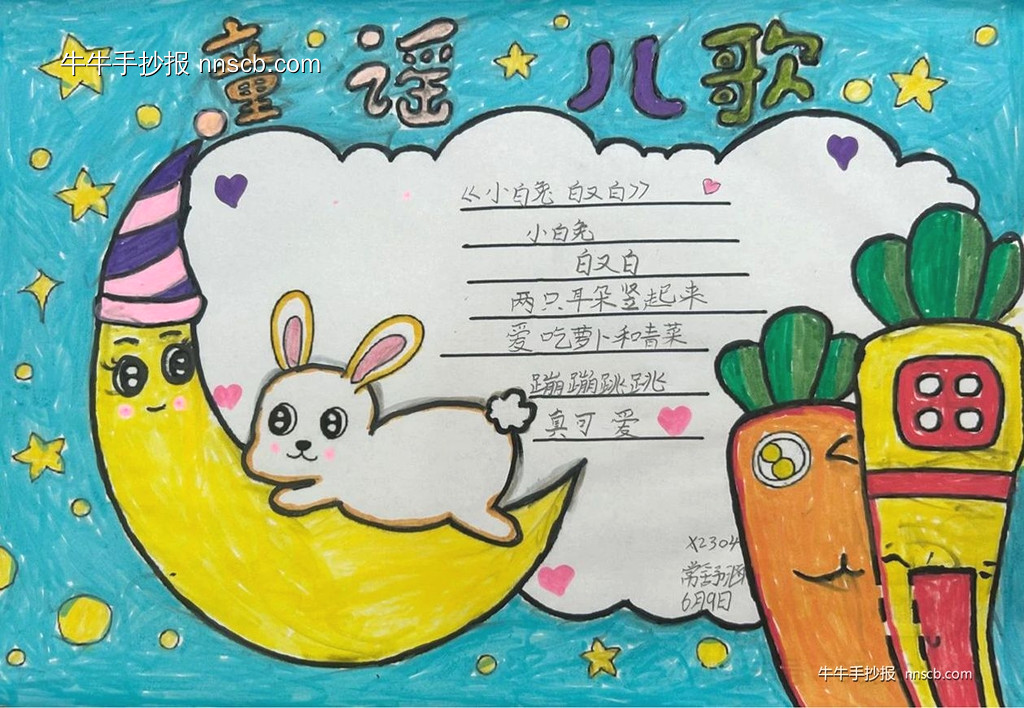 牛牛手抄报 nnscb.com
童谣 儿歌
《小白兔 白又白》
小白兔
白又白
两只耳朵竖起来
爱吃萝卜和青菜
蹦蹦跳跳
真可爱
X2304
6月9日
牛牛手抄报 nnscb.com